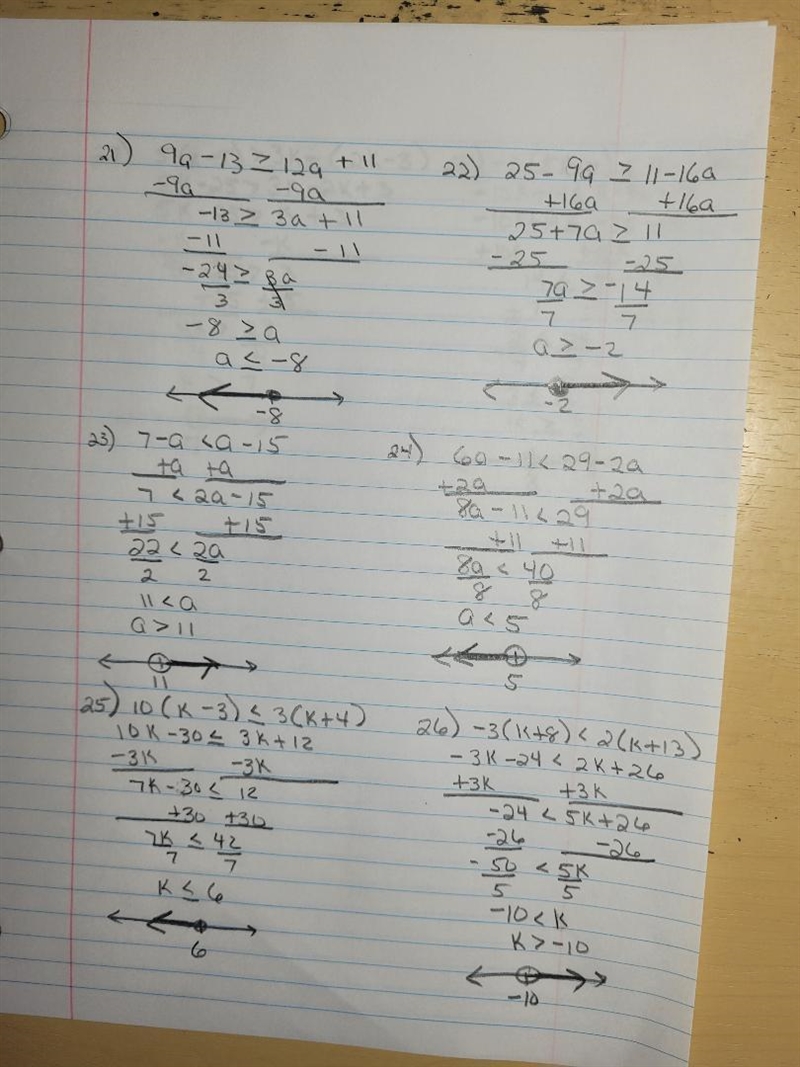 21) 9a - 13 ≥ 12a + 11
-9a -9a
-13 ≥ 3a + 11
-11 -11
-24 ≥ 3a
3 3
-8 ≥ a
a ≤ -8
-8
22) 25 - 9a ≥ 11 - 16a
+16a +16a
25 + 7a ≥ 11
-25 -25
7a ≥ -14
7 7
a ≥ -2
-2
23) 7 - a < a - 15
+a +a
7 < 2a - 15
+15 +15
22 < 2a
2 2
11 < a
a > 11
11
24) 6a - 11 < 29 - 2a
+2a +2a
8a - 11 < 29
+11 +11
8a < 40
8 8
a < 5
5
25) 10(k - 3) ≤ 3(k + 4)
10k - 30 ≤ 3k + 12
-3k -3k
7k - 30 ≤ 12
+30 +30
7k ≤ 42
7 7
k ≤ 6
6
26) -3(k + 8) < 2(k + 13)
-3k - 24 < 2k + 26
+3k +3k
-24 < 5k + 26
-26 -26
-50 < 5k
5 5
-10 < k
k > -10
-10